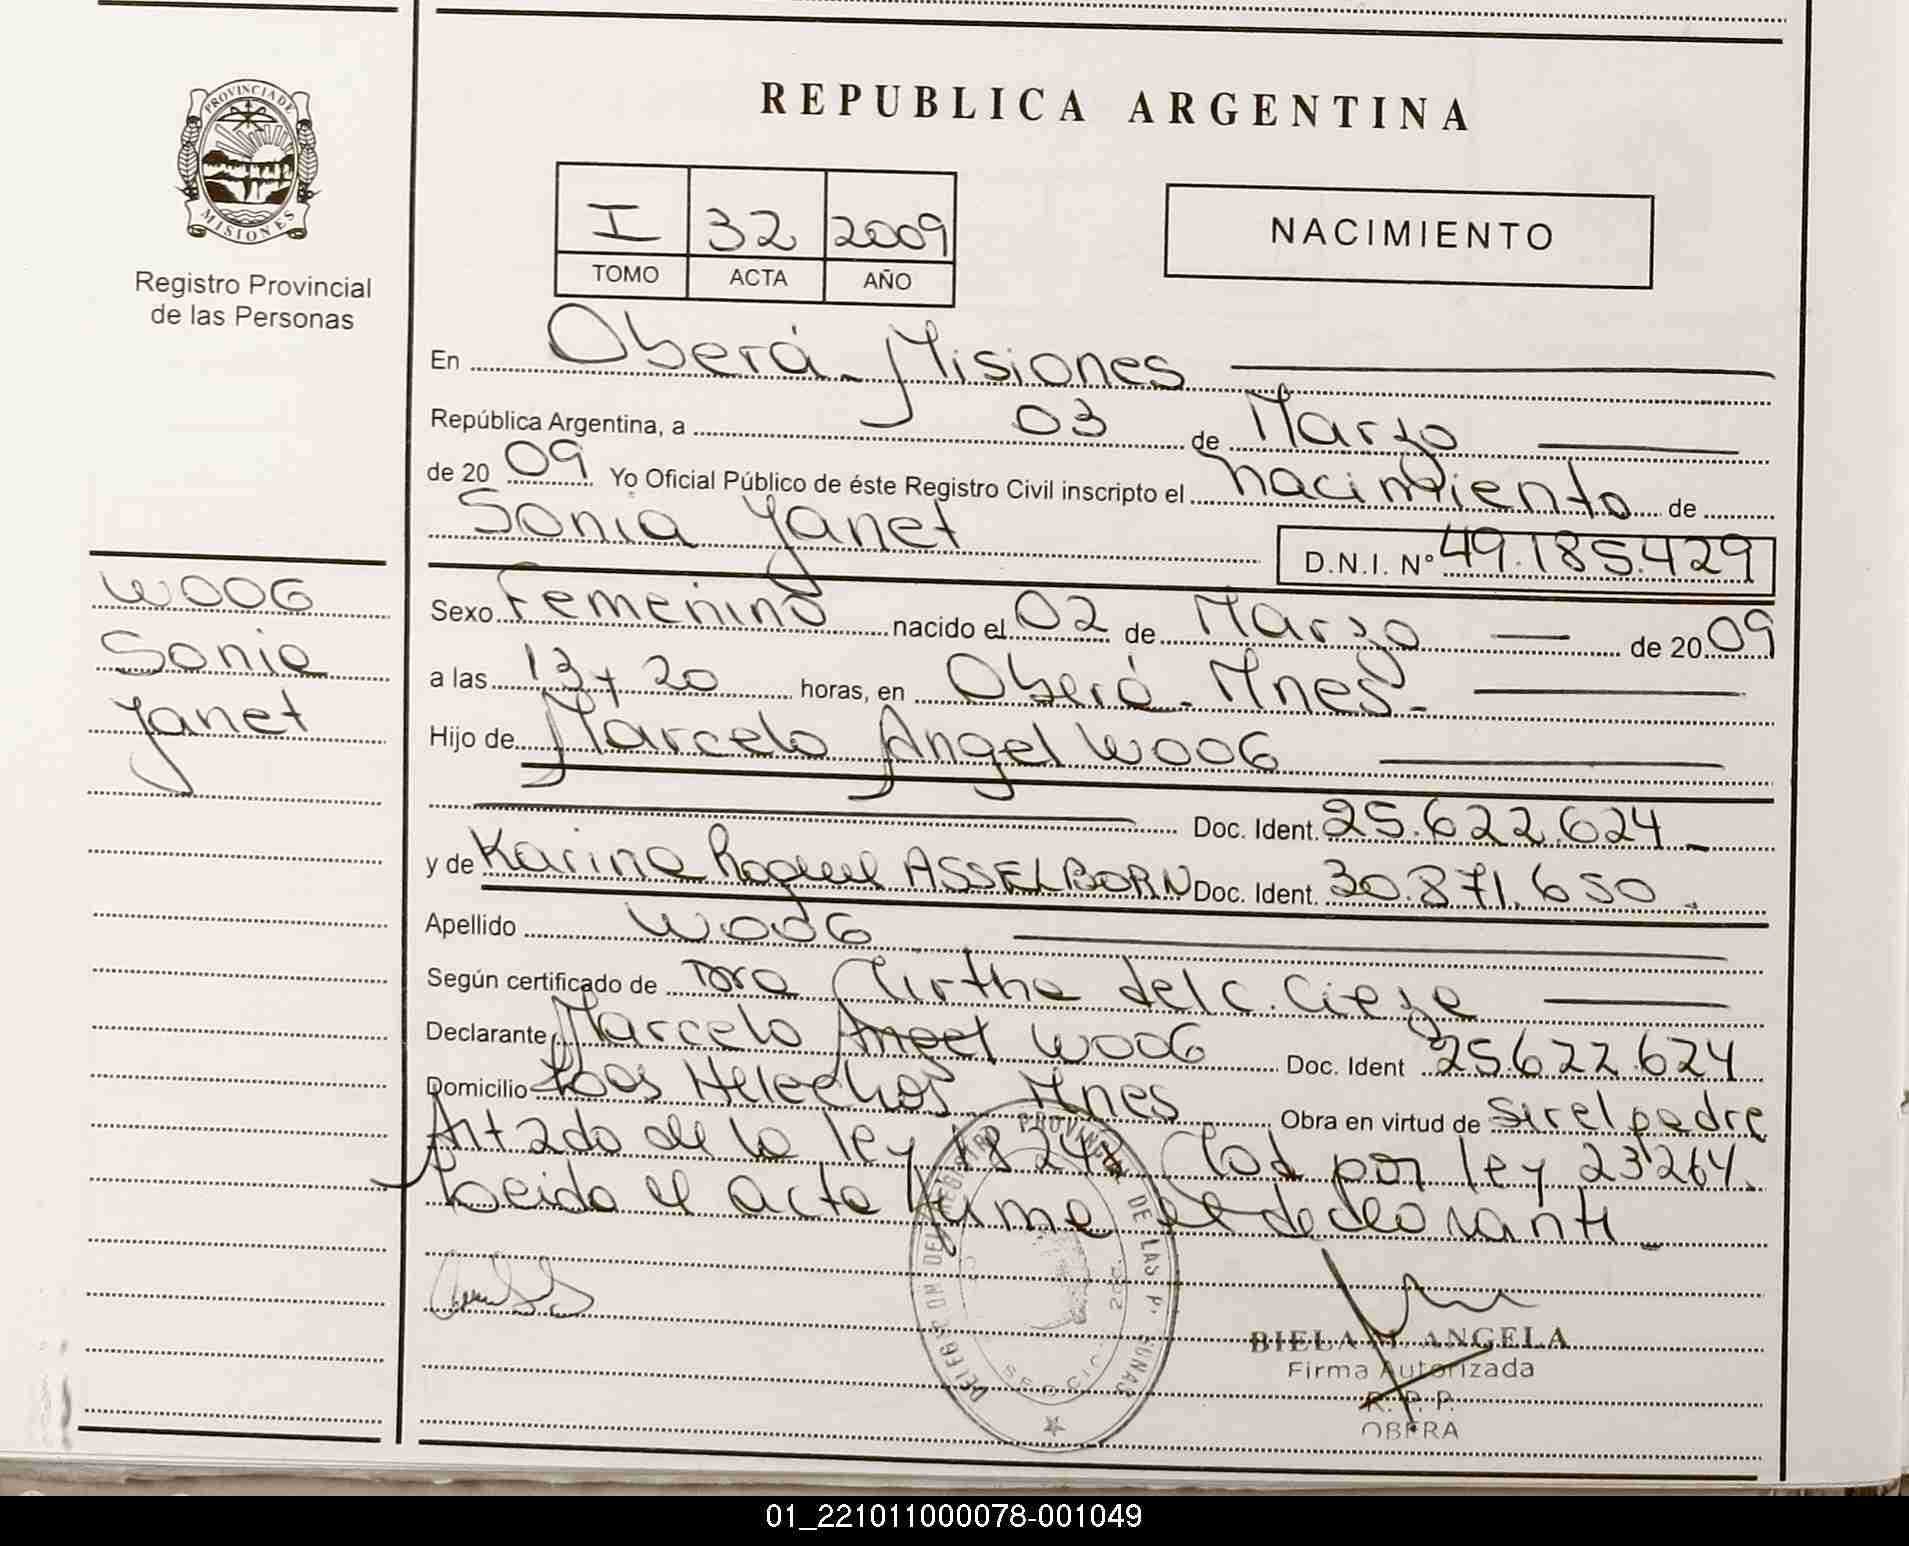 REPUBLICA ARGENTINA
PROVINCIA DE
MISIONES
Registro Provincial
de las Personas
I 32 2009
TOMO ACTA AÑO
NACIMIENTO
En Oberá - Misiones
República Argentina, a 03 de Marzo
de 20 09 Yo Oficial Público de éste Registro Civil inscripto el nacimiento de
Sonia Yanet D.N.I. Nº 49.185.429
WOOG
Sonia
Yanet
Sexo Femenino nacido el 02 de Marzo de 20 09
a las 13 y 20 horas, en Oberá - Mnes -
Hijo de Marcelo Angel WOOG
Doc. Ident. 25.622.624 -
y de Karina Raquel ASSELBORN Doc. Ident. 30.871.650 -
Apellido WOOG
Según certificado de Dra Mirtha del C. Cieza
Declarante Marcelo Angel WOOG Doc. Ident 25.622.624
Domicilio Los Helechos Mnes Obra en virtud de ser el padre
Art 2do de la ley 18.248 Mod por ley 23.264.
Leida el acta firma el declarante -
DELEGACION DEL REGISTRO PROVINCIAL DE LAS PERSONAS
BIELA M. ANGELA
Firma Autorizada
R. P. P.
OBERA
01_221011000078-001049